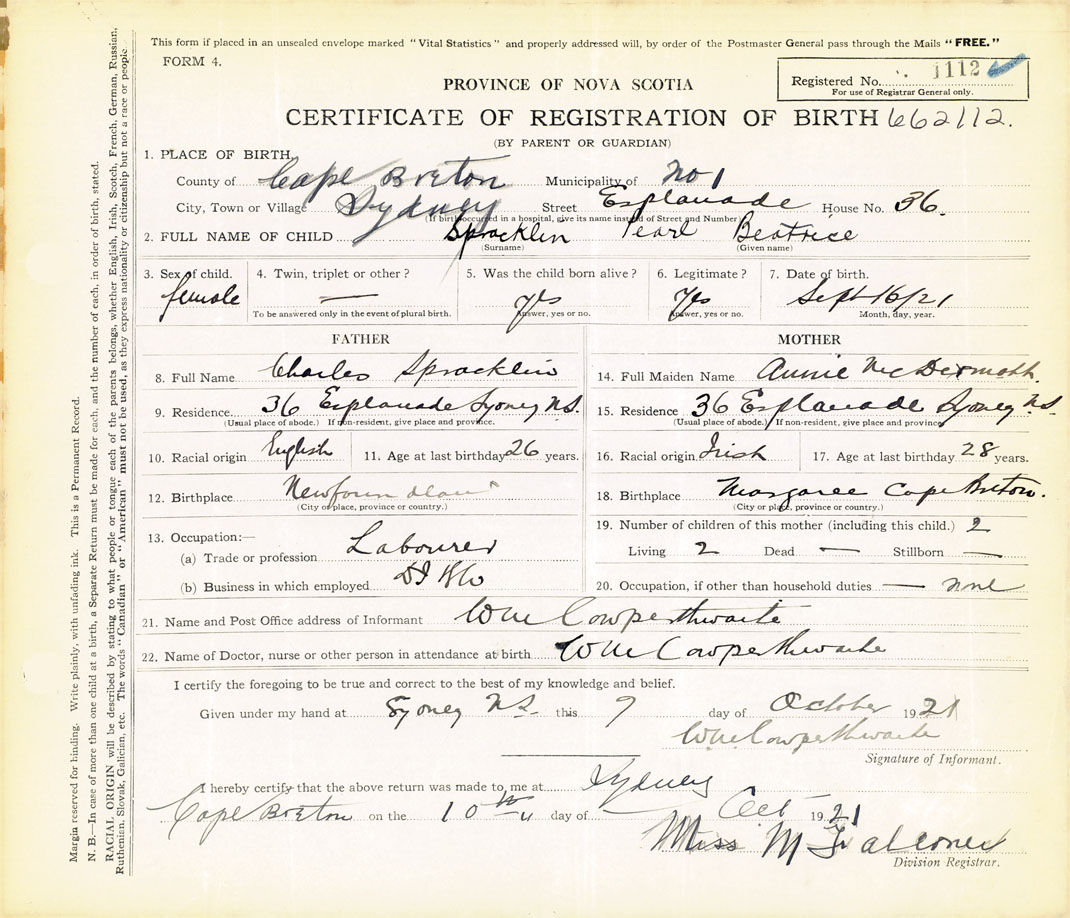 This form if placed in an unsealed envelope marked "Vital Statistics" and properly addressed will, by order of the Postmaster General pass through the Mails "FREE."
FORM 4.
Registered No. 1112
For use of Registrar General only.
PROVINCE OF NOVA SCOTIA
CERTIFICATE OF REGISTRATION OF BIRTH 662112.
(BY PARENT OR GUARDIAN)
1. PLACE OF BIRTH,
County of Cape Breton Municipality of No 1
City, Town or Village Sydney Street Esplanade House No. 36.
(If birth occurred in a hospital, give its name instead of Street and Number)
2. FULL NAME OF CHILD Spracklin Pearl Beatrice
(Surname) (Given name)
3. Sex of child. 4. Twin, triplet or other? 5. Was the child born alive? 6. Legitimate? 7. Date of birth.
female — Yes Yes Sept 16/21
To be answered only in the event of plural birth. Answer, yes or no. Answer, yes or no. Month, day, year.
FATHER
8. Full Name Charles Spracklin
9. Residence 36 Esplanade Sydney N.S.
(Usual place of abode.) If non-resident, give place and province.
10. Racial origin English 11. Age at last birthday 26 years.
12. Birthplace Newfoundland
(City or place, province or country.)
13. Occupation:—
(a) Trade or profession Labourer
(b) Business in which employed
MOTHER
14. Full Maiden Name Annie McDermott.
15. Residence 36 Esplanade Sydney N.S.
(Usual place of abode.) If non-resident, give place and province
16. Racial origin Irish 17. Age at last birthday 28 years.
18. Birthplace Margaree Cape Breton.
(City or place, province or country.)
19. Number of children of this mother (including this child.) 2
Living 2 Dead — Stillborn —
20. Occupation, if other than household duties — none
21. Name and Post Office address of Informant Wm Cowperthwaite
22. Name of Doctor, nurse or other person in attendance at birth Wm Cowperthwaite
I certify the foregoing to be true and correct to the best of my knowledge and belief.
Given under my hand at Sydney N.S. this 9 day of October 1921
Wm Cowperthwaite
Signature of Informant.
I hereby certify that the above return was made to me at Sydney
Cape Breton on the 10th day of Oct 1921
Miss M Falconer
Division Registrar.
Margin reserved for binding. Write plainly, with unfading ink. This is a Permanent Record.
N. B.—In case of more than one child at a birth, a Separate Return must be made for each, and the number of each, in order of birth, stated.
RACIAL ORIGIN will be described by stating to what people or tongue each of the parents belongs, whether English, Irish, Scotch, French, German, Russian,
Ruthenian, Slovak, Galician, etc. The words "Canadian" or "American" must not be used, as they express nationality or citizenship but not a race or people.